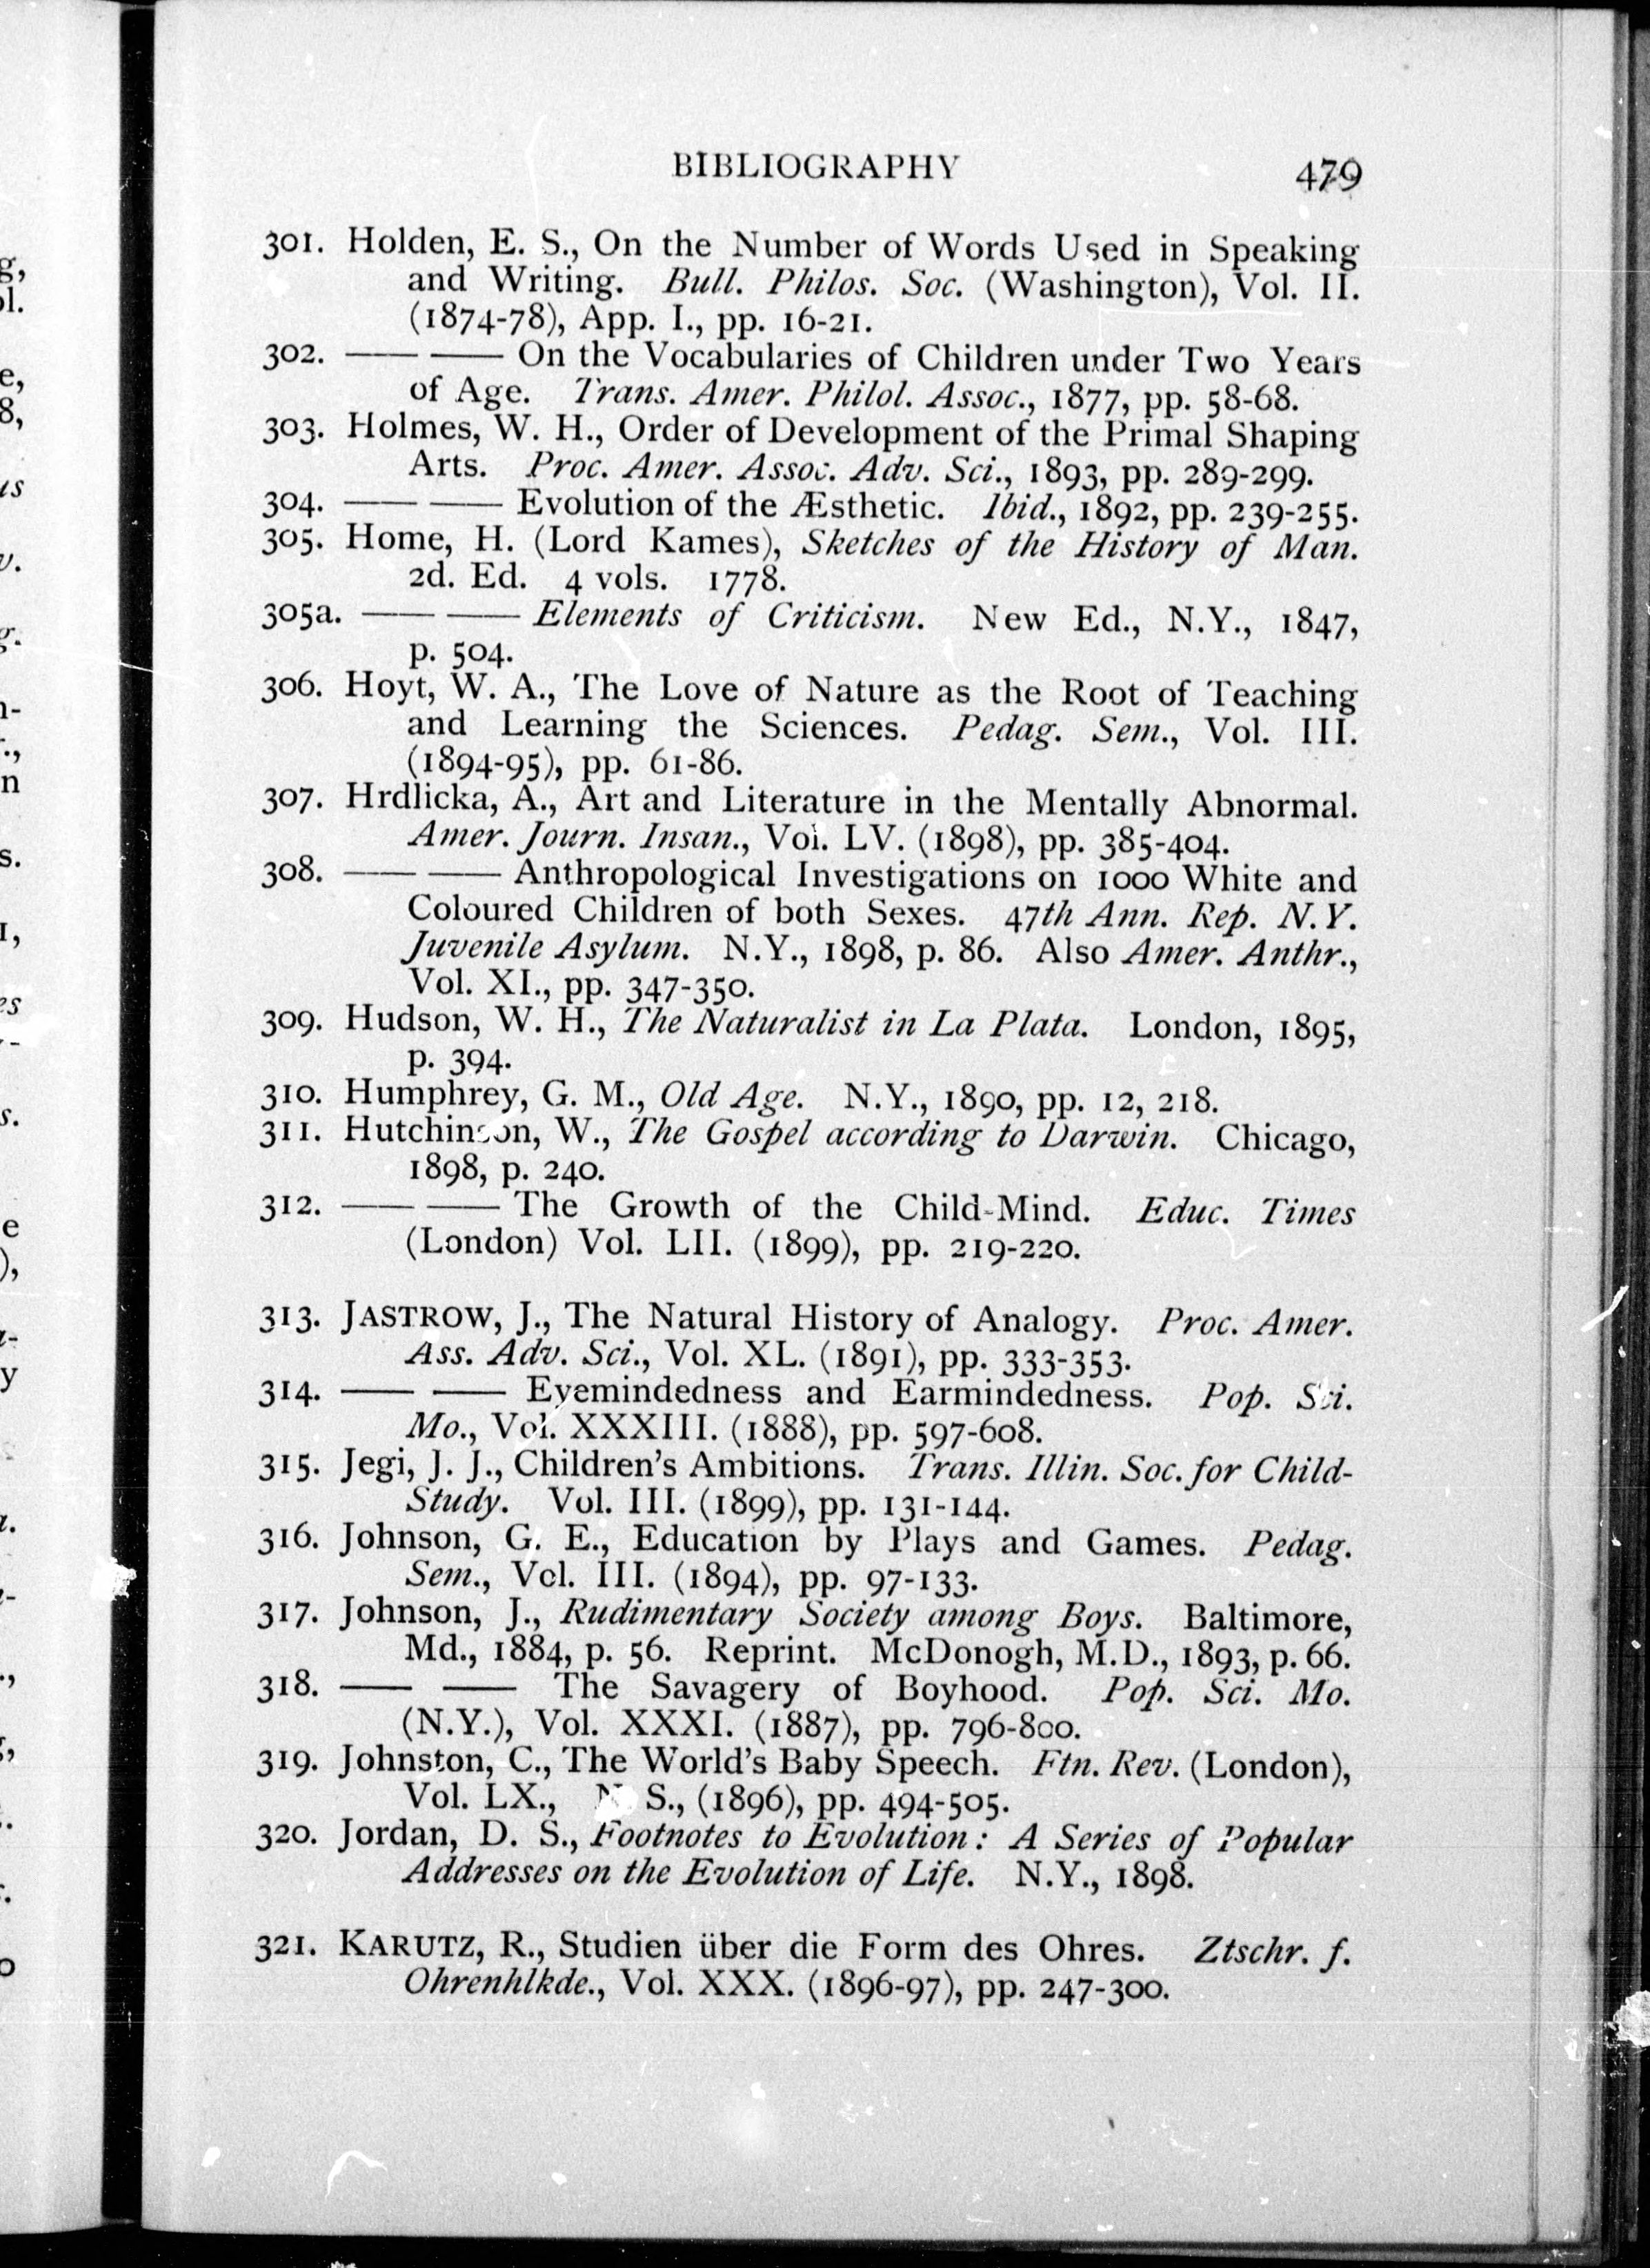 BIBLIOGRAPHY 479
301. Holden, E. S., On the Number of Words Used in Speaking
and Writing. Bull. Philos. Soc. (Washington), Vol. II.
(1874-78), App. I., pp. 16-21.
302. —— —— On the Vocabularies of Children under Two Years
of Age. Trans. Amer. Philol. Assoc., 1877, pp. 58-68.
303. Holmes, W. H., Order of Development of the Primal Shaping
Arts. Proc. Amer. Assoc. Adv. Sci., 1893, pp. 289-299.
304. —— —— Evolution of the Æsthetic. Ibid., 1892, pp. 239-255.
305. Home, H. (Lord Kames), Sketches of the History of Man.
2d. Ed. 4 vols. 1778.
305a. —— —— Elements of Criticism. New Ed., N.Y., 1847,
p. 504.
306. Hoyt, W. A., The Love of Nature as the Root of Teaching
and Learning the Sciences. Pedag. Sem., Vol. III.
(1894-95), pp. 61-86.
307. Hrdlicka, A., Art and Literature in the Mentally Abnormal.
Amer. Journ. Insan., Vol. LV. (1898), pp. 385-404.
308. —— —— Anthropological Investigations on 1000 White and
Coloured Children of both Sexes. 47th Ann. Rep. N.Y.
Juvenile Asylum. N.Y., 1898, p. 86. Also Amer. Anthr.,
Vol. XI., pp. 347-350.
309. Hudson, W. H., The Naturalist in La Plata. London, 1895,
p. 394.
310. Humphrey, G. M., Old Age. N.Y., 1890, pp. 12, 218.
311. Hutchinson, W., The Gospel according to Darwin. Chicago,
1898, p. 240.
312. —— —— The Growth of the Child-Mind. Educ. Times
(London) Vol. LII. (1899), pp. 219-220.
313. JASTROW, J., The Natural History of Analogy. Proc. Amer.
Ass. Adv. Sci., Vol. XL. (1891), pp. 333-353.
314. —— —— Eyemindedness and Earmindedness. Pop. Sci.
Mo., Vol. XXXIII. (1888), pp. 597-608.
315. Jegi, J. J., Children's Ambitions. Trans. Illin. Soc. for Child-
Study. Vol. III. (1899), pp. 131-144.
316. Johnson, G. E., Education by Plays and Games. Pedag.
Sem., Vol. III. (1894), pp. 97-133.
317. Johnson, J., Rudimentary Society among Boys. Baltimore,
Md., 1884, p. 56. Reprint. McDonogh, M.D., 1893, p. 66.
318. —— —— The Savagery of Boyhood. Pop. Sci. Mo.
(N.Y.), Vol. XXXI. (1887), pp. 796-800.
319. Johnston, C., The World's Baby Speech. Ftn. Rev. (London),
Vol. LX., N. S., (1896), pp. 494-505.
320. Jordan, D. S., Footnotes to Evolution: A Series of Popular
Addresses on the Evolution of Life. N.Y., 1898.
321. KARUTZ, R., Studien über die Form des Ohres. Ztschr. f.
Ohrenhlkde., Vol. XXX. (1896-97), pp. 247-300.